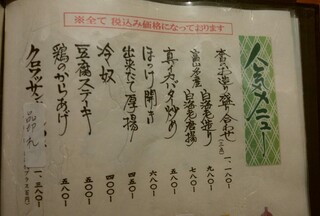 ※全て 税込み価格になっております
人気メニュー
本日のお造り盛り合わせ(三点) 一、一八〇
富山名産 白海老造り 九八〇
白海老唐揚 七八〇
真イカバタ炒め 六八〇
ほっけ開き 八五〇
出来たて厚揚 四五〇
冷奴 四〇〇
豆腐ステーキ 五〇〇
鶏のからあげ 五八〇
クロワッサン 一、三八〇
品切れ